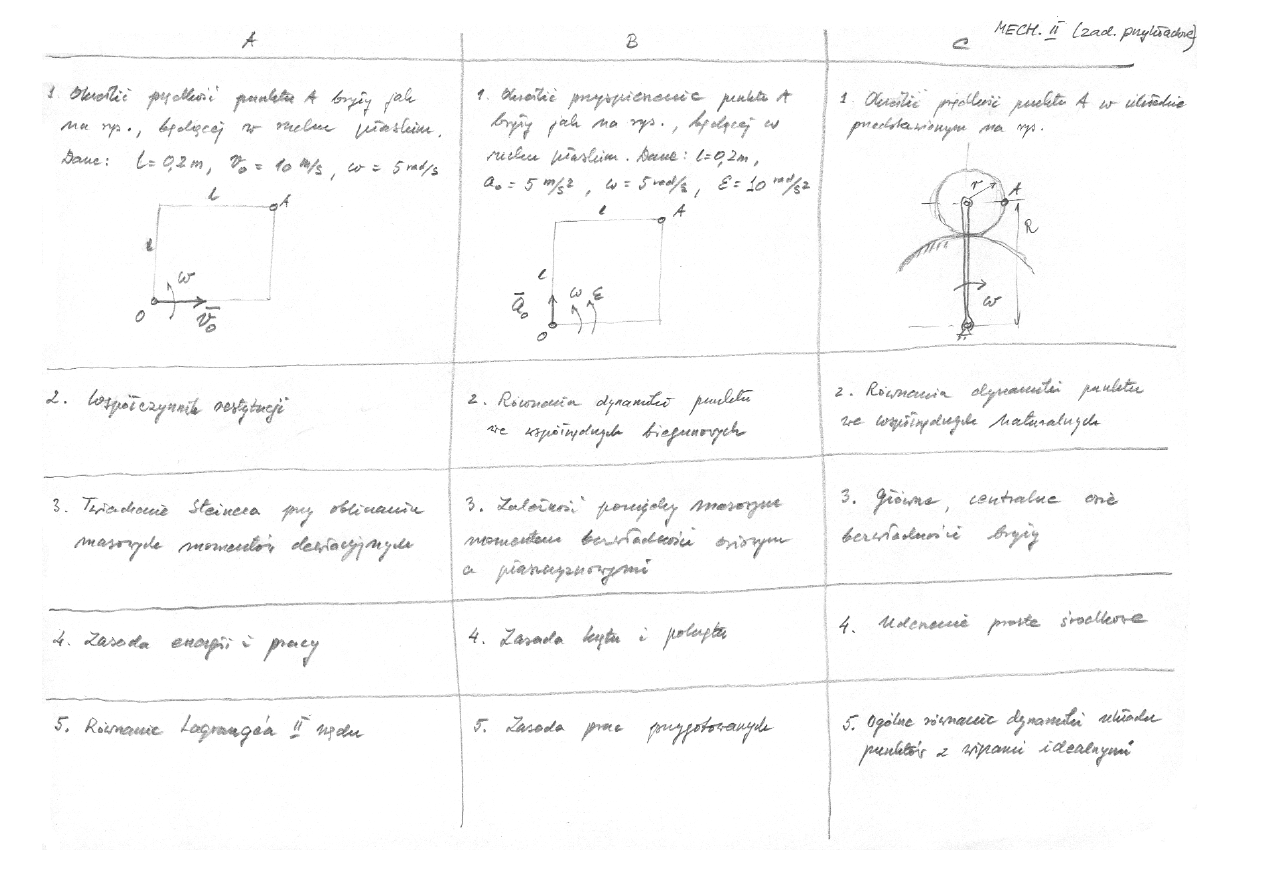 MECH. II (zad. przykładowe)
A
B
C
1. Określić prędkość punktu A bryły jak
na rys., będącej w ruchu płaskim.
Dane: l = 0,2 m, v₀ = 10 m/s, ω = 5 rad/s
l
A
l
ω
O
v̄₀
1. Określić przyspieszenie punktu A
bryły jak na rys., będącej w
ruchu płaskim. Dane: l = 0,2m,
a₀ = 5 m/s², ω = 5 rad/s, ε = 10 rad/s²
l
A
l
ā₀
ω ε
O
1. Określić prędkość punktu A w układzie
przedstawionym na rys.
r
A
R
ω
2. Współczynnik restytucji
2. Równania dynamiki punktu
we współrzędnych biegunowych
2. Równania dynamiki punktu
we współrzędnych naturalnych
3. Twierdzenie Steinera przy obliczaniu
masowych momentów dewiacyjnych
3. Zależność pomiędzy masowym
momentem bezwładności osiowym
a płaszczyznowymi
3. Główne, centralne osie
bezwładności bryły
4. Zasada energii i pracy
4. Zasada krętu i pokrętu
4. Uderzenie proste środkowe
5. Równanie Lagrange'a II rzędu
5. Zasada prac przygotowanych
5. Ogólne równanie dynamiki układu
punktów z więzami idealnymi